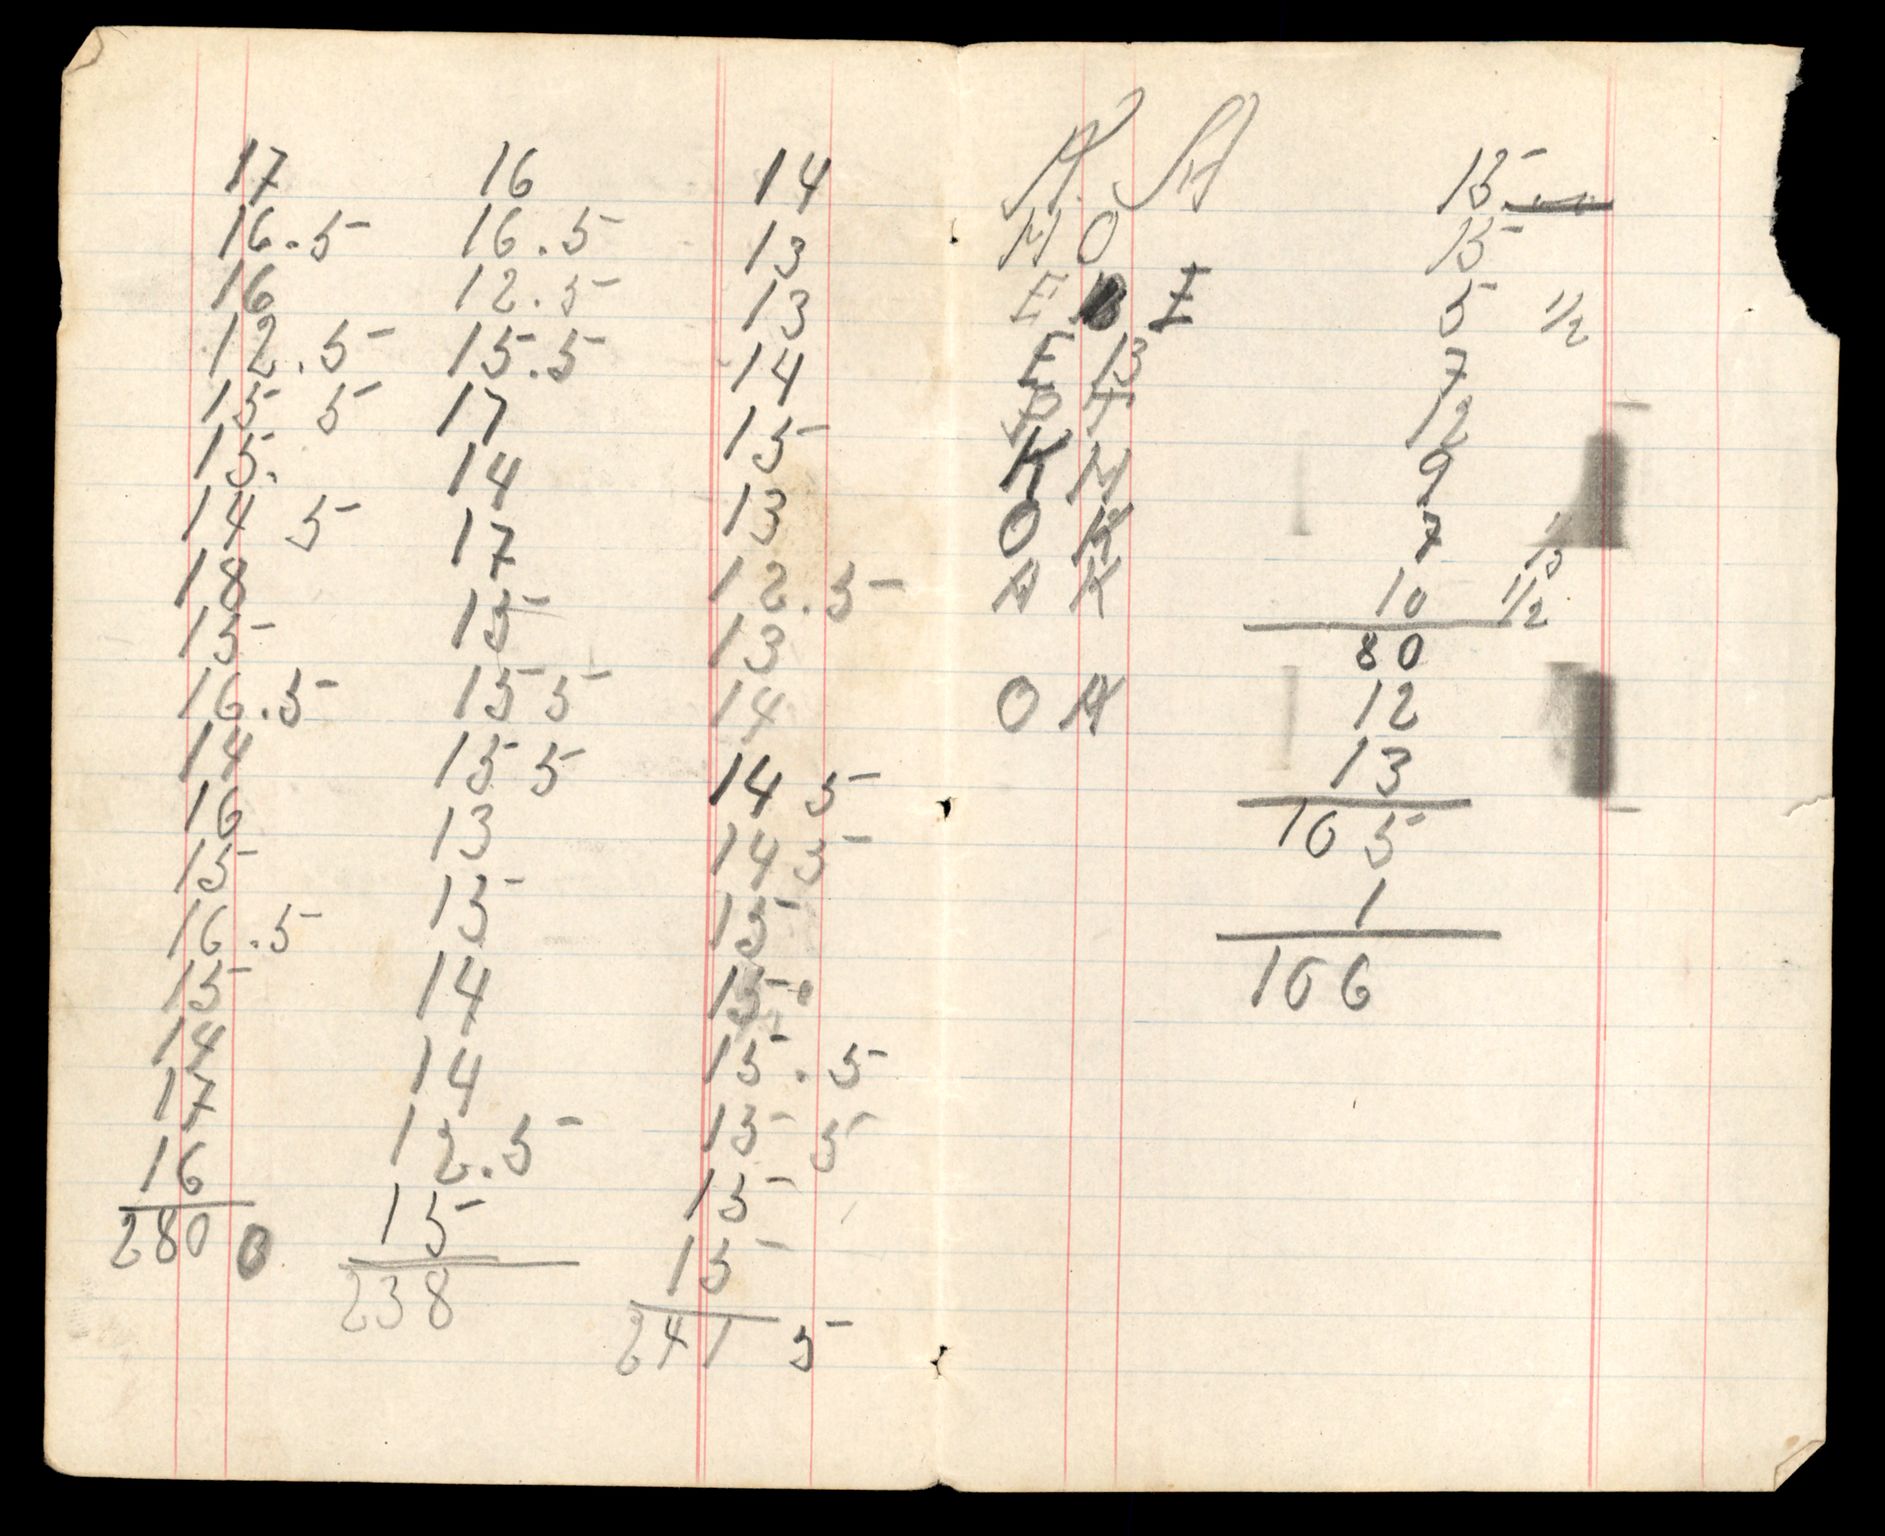 17 16 14
16.5 16.5 13
16 12.5 13
12.5 15.5 14
15 5 17 15
15. 14 13
14 5 17 12.5
18 15 13
15 15 5 14
16.5 15 5 14 5
14 13 14 5
16 15 15
15 14 15.
16.5 14 15.5
15 12.5 15 5
14 15 15
17 238 15
16 241 5
280 0
A A 15
M O 15
E E 5 1/2
E B 7
12
K M 9
O K 7 1/2
A K 10 1/2
80
O A 12
13
105
1
106